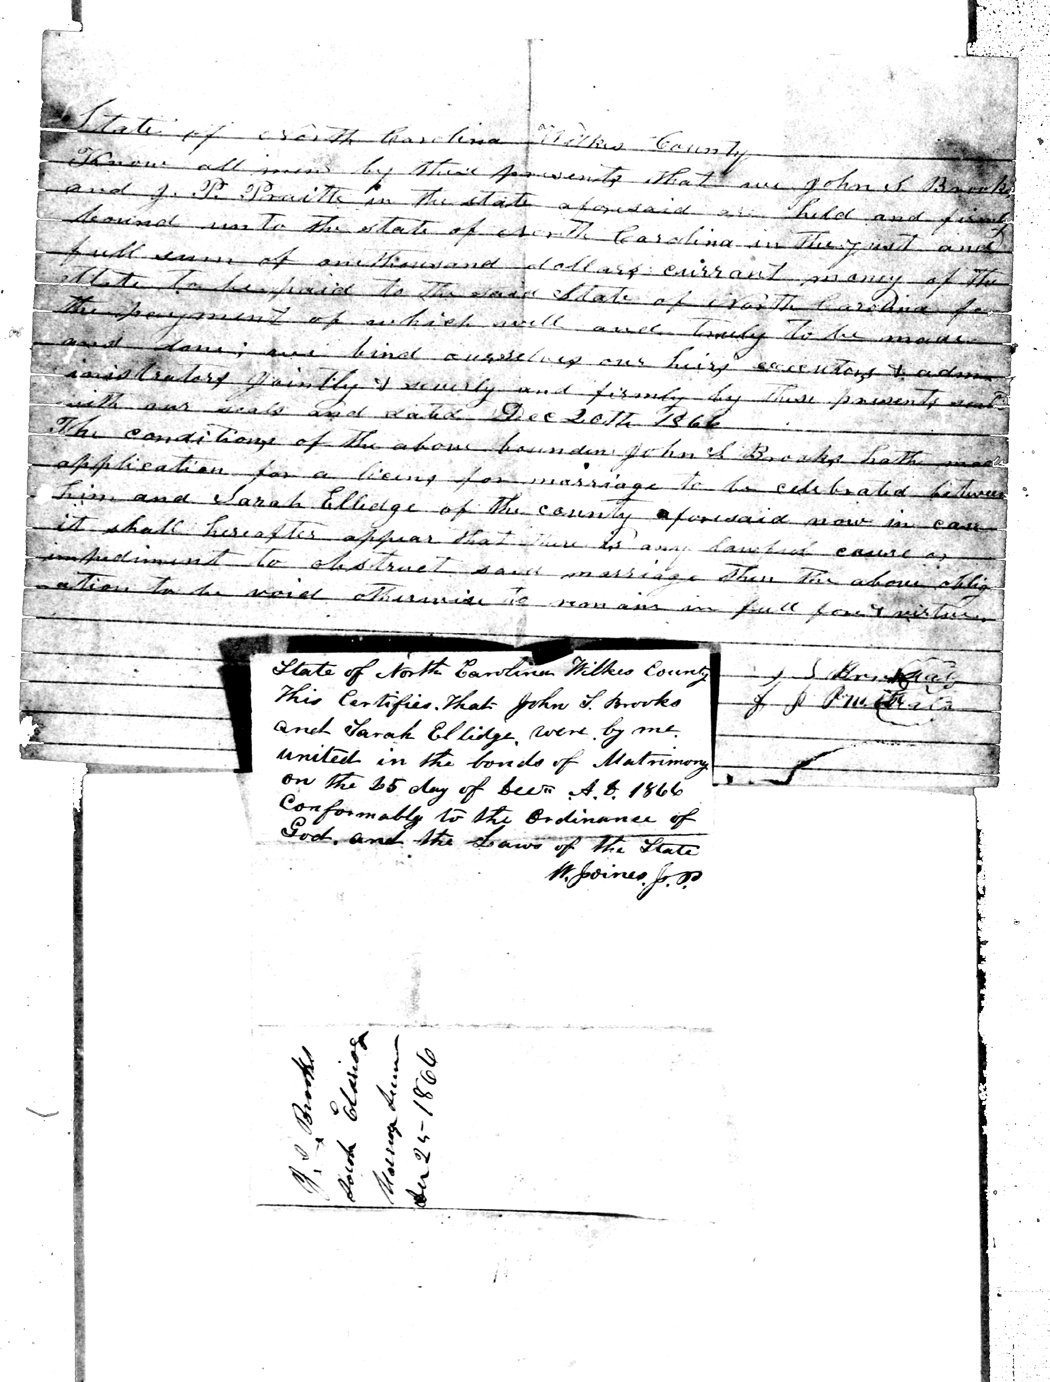 State of North Carolina Wilkes County
Know all men by these presents that we John S Brooks
and J. P. Praitt in the state aforesaid are held and firmly
bound unto the state of North Carolina in the just and
full sum of one thousand dollars currant money of the
State to be paid to the said State of North Carolina for
the payment of which well and truly to be made
and done; we bind ourselves our heirs executors & adm
inistrators jointly & severly and firmly by these presents seal
with our seals and dated Dec 20th 1866
The conditions of the above bounden John S Brooks hath made
application for a licens for marriage to be celebrated between
him and Sarah Elledge of the county aforesaid now in case
it shall hereafter appear that there is any lawful cause or
impediment to obstruct said marriage then the above oblig
ation to be void otherwise to remain in full force & virtue
J S Brooks
J P
State of North Carolina Wilkes County
This Certifies. That John S. Brooks
and Sarah Ellidge, were, by me,
united in the bonds of Matrimony
on the 25 day of Decm A.D. 1866
Conformably to the Ordinance of
God, and the Laws of the State
W. Joines, J. P.
J S Brooks
to
Sarah
Marriage
1866